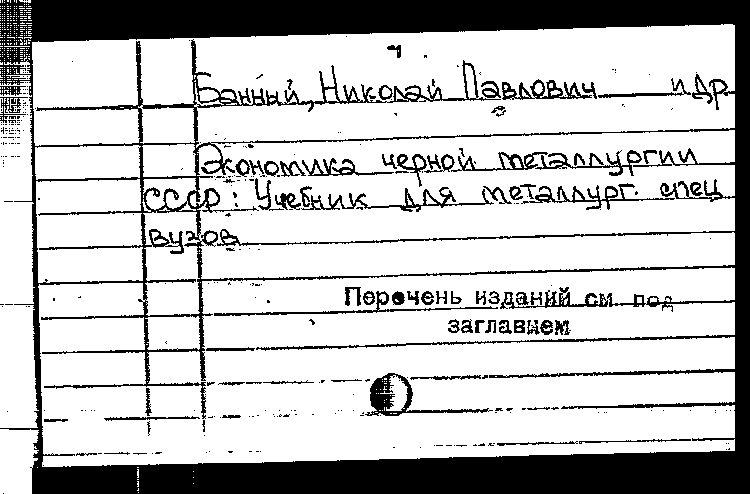 Банный, Николай Павлович и др
Экономика черной металлургии
СССР: Учебник для металлург. спец
вузов
Перечень изданий см. под
заглавием